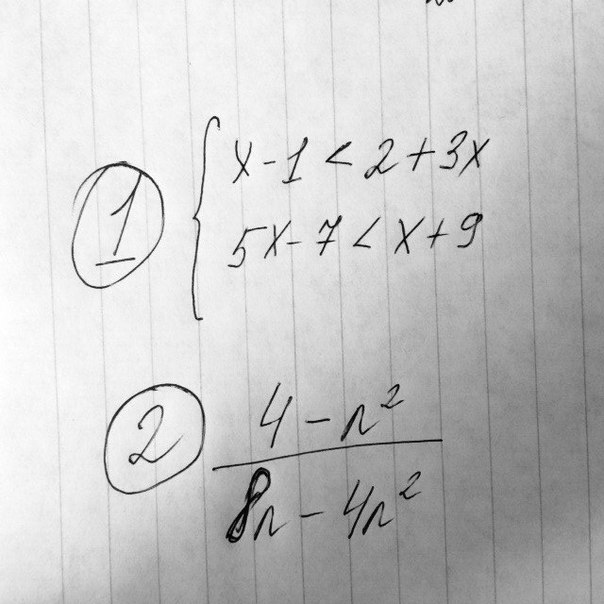 1 { x - 1 < 2 + 3x
5x - 7 < x + 9
2 4 - n²
8n - 4n²